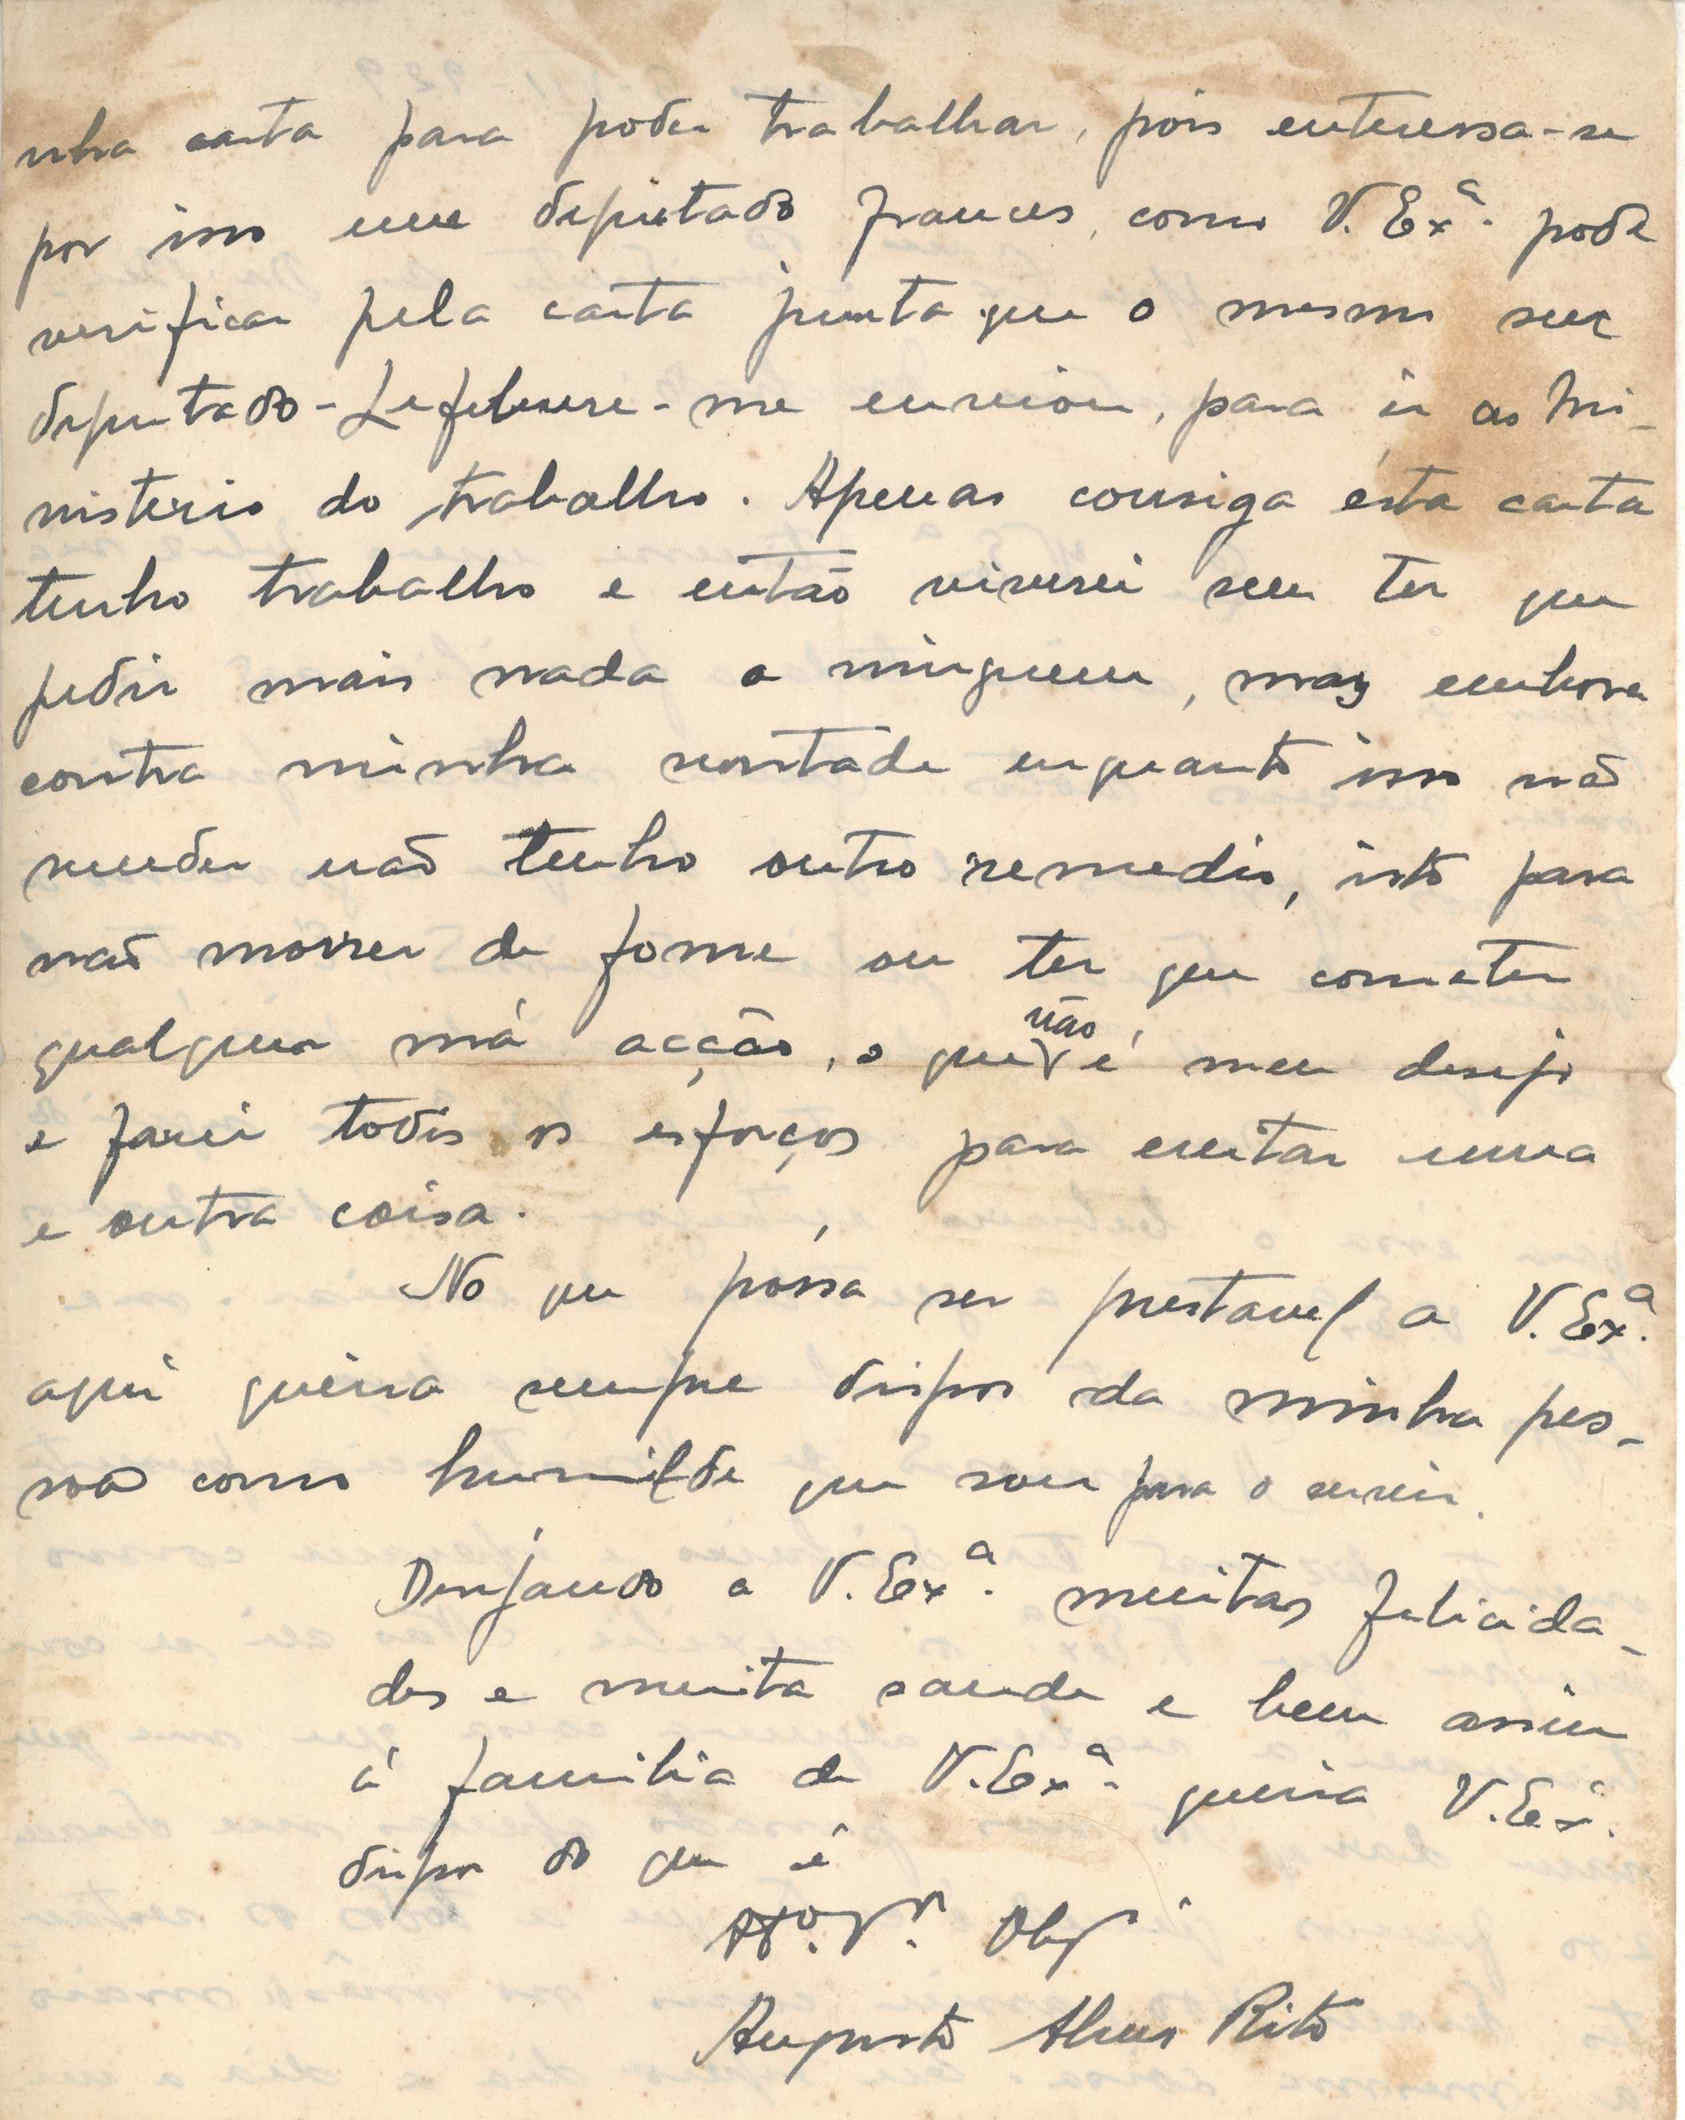 nha carta para poder trabalhar, pois enteressa-se
por isso um deputado frances, como V. Exª. pode
verificar pela carta junta que o mesmo snr
deputado - Lefebvre - me enviou, para ir ao Mi-
nisterio do trabalho. Apenas consiga ésta carta
tenho trabalho e então viverei sem ter que
pedir mais nada a ninguem, mas embora
contra minha vontade enquanto isso não
suceder não tenho outro remedio, isto para
não morrer de fome ou ter que cometer
qualquer má acção, o que não é meu desejo
e farei todos os esforços para evitar uma
e outra coisa.
No que póssa ser prestavel a V. Exª.
aqui queira sempre dispor da minha pes-
soa como humilde que sou para o servir.
Desejando a V. Exª. muitas felicida-
des e muita saude e bem assim
á familia de V. Exª. queira V. Exª.
dispor do que é
Attº. Vºr. Obgº
Augusto Alves Rito